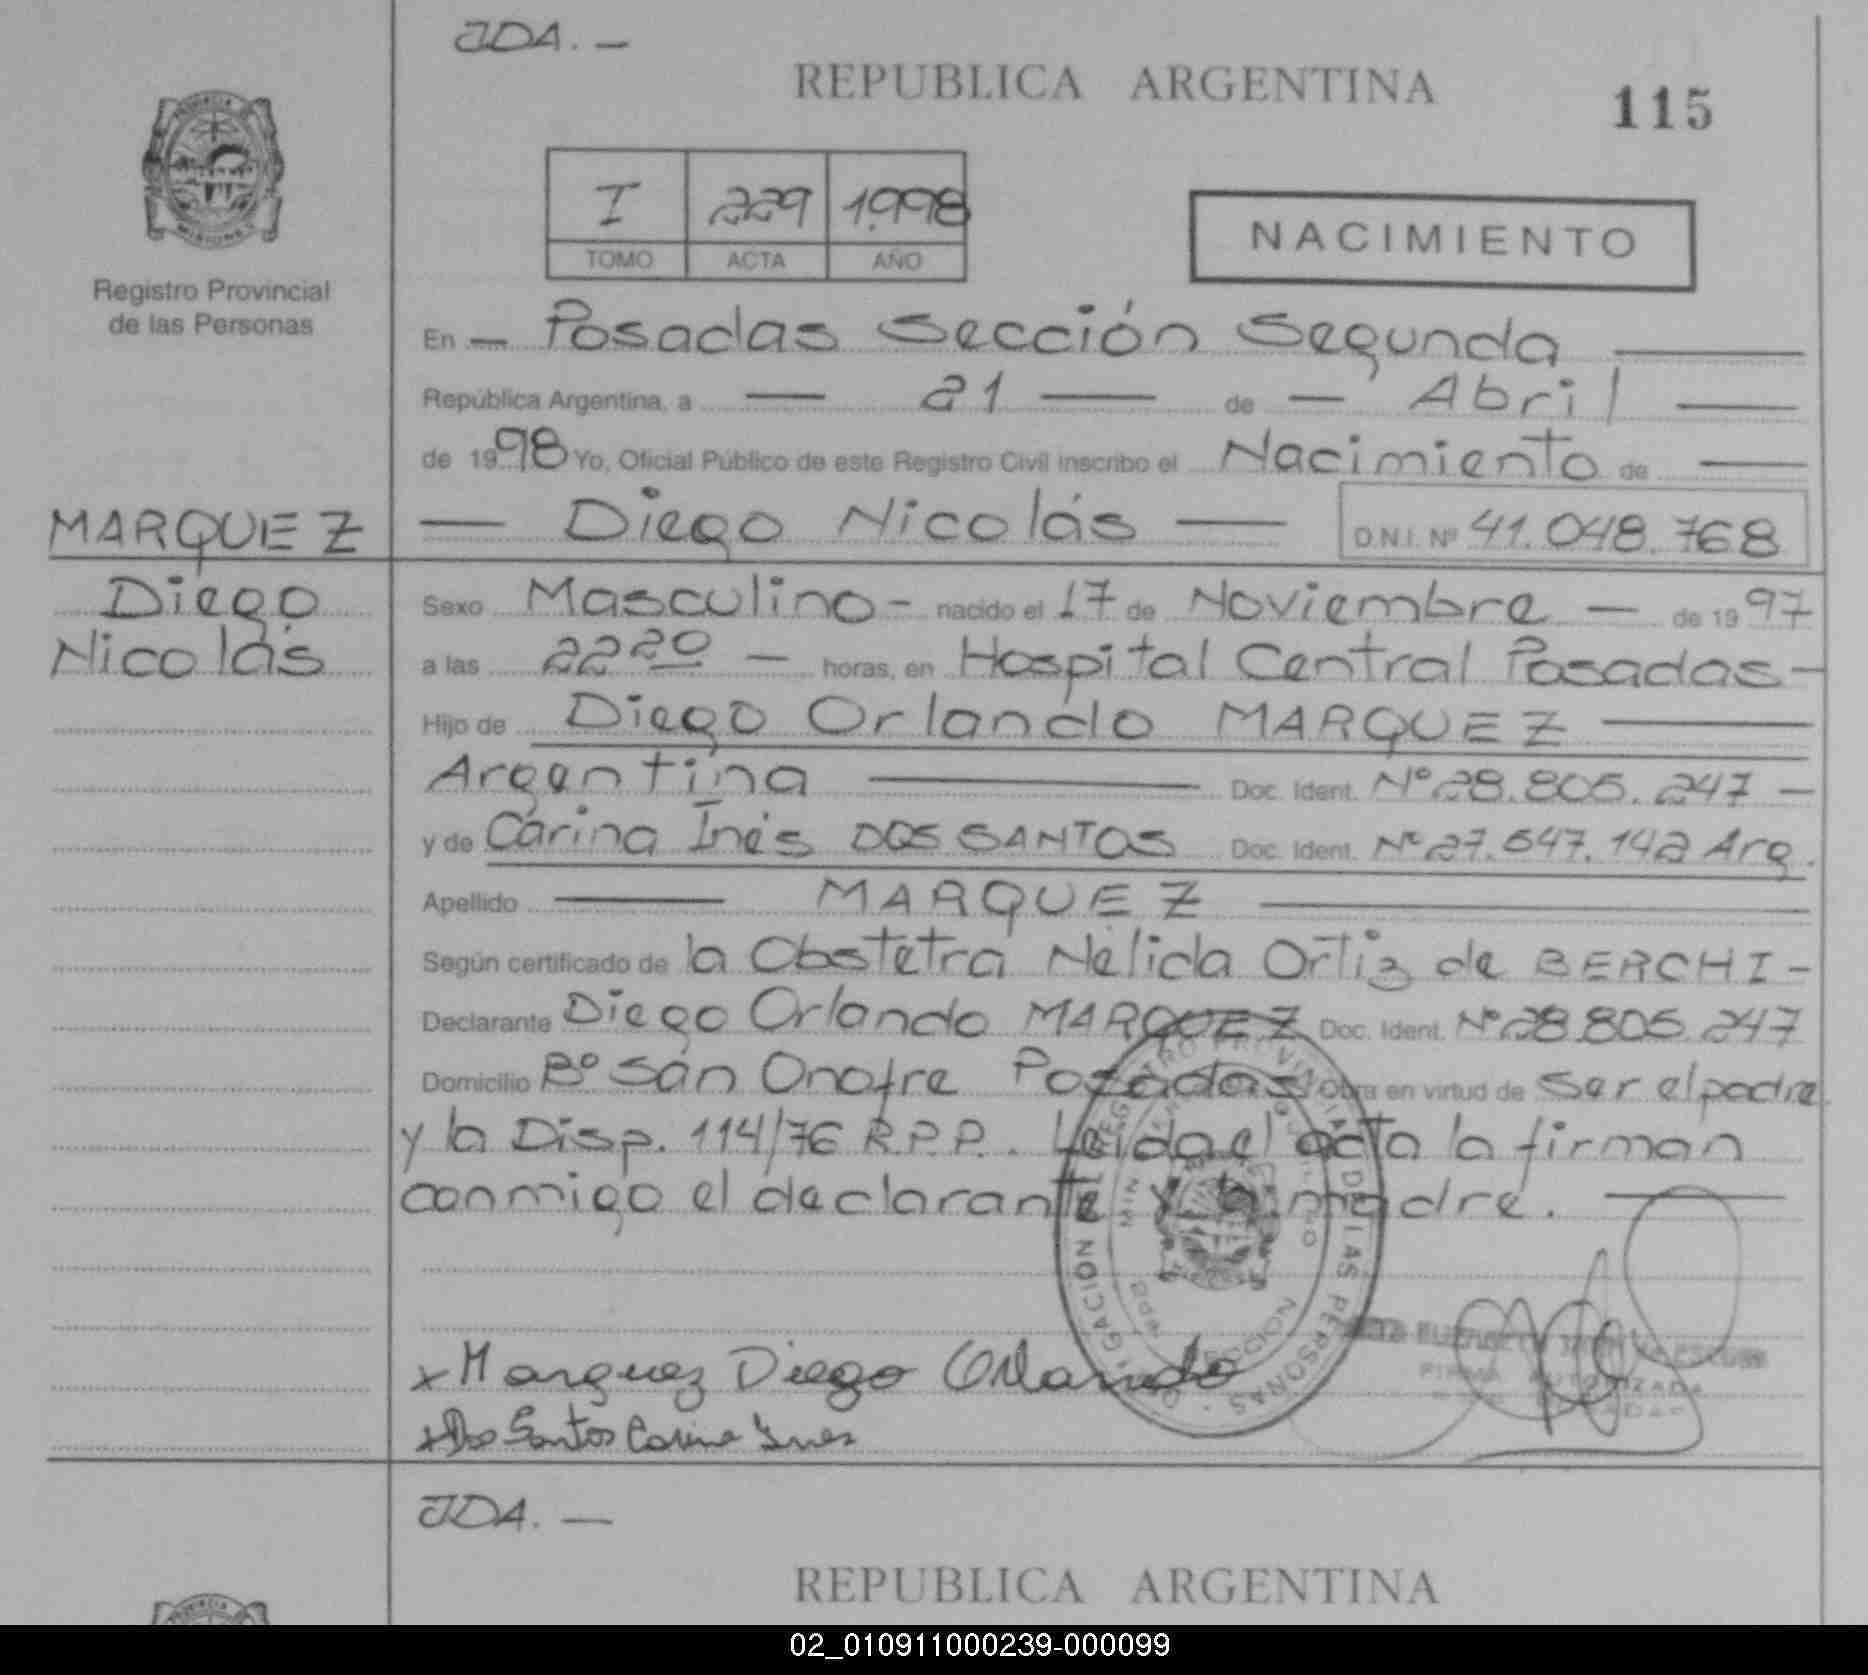 JDA. —
REPUBLICA ARGENTINA
115
PROVINCIA
MISIONES
Registro Provincial
de las Personas
I 229 1.998
TOMO ACTA AÑO
NACIMIENTO
En — Posadas Sección Segunda —
República Argentina, a — 21 — de — Abril —
de 1998 Yo, Oficial Público de este Registro Civil inscribo el Nacimiento de —
MARQUEZ — Diego Nicolás — D.N.I. Nº 41.048.768
Diego Sexo Masculino - nacido el 17 de Noviembre — de 1997
Nicolás a las 22 20 — horas, en Hospital Central Posadas -
Hijo de Diego Orlando MARQUEZ —
Argentina — Doc. Ident. Nº 28.805.247 —
y de Carina Inés DOS SANTOS Doc. Ident. Nº 27.547.142 Arg.
Apellido — MARQUEZ —
Según certificado de la Obstetra Nélida Ortiz de BERCHI -
Declarante Diego Orlando MARQUEZ Doc. Ident. Nº 28.805.247
Domicilio Bº San Onofre Posadas obra en virtud de Ser el padre
y la Disp. 114/76 R.P.P. . Leida el acta la firman
conmigo el declarante y la madre. —
REGISTRO PROVINCIAL DE LAS PERSONAS
x Marquez Diego Orlando
FIRMA AUTORIZADA
x Dos Santos Carina Ines
JDA. —
REPUBLICA ARGENTINA
PROVINCIA
02_010911000239-000099